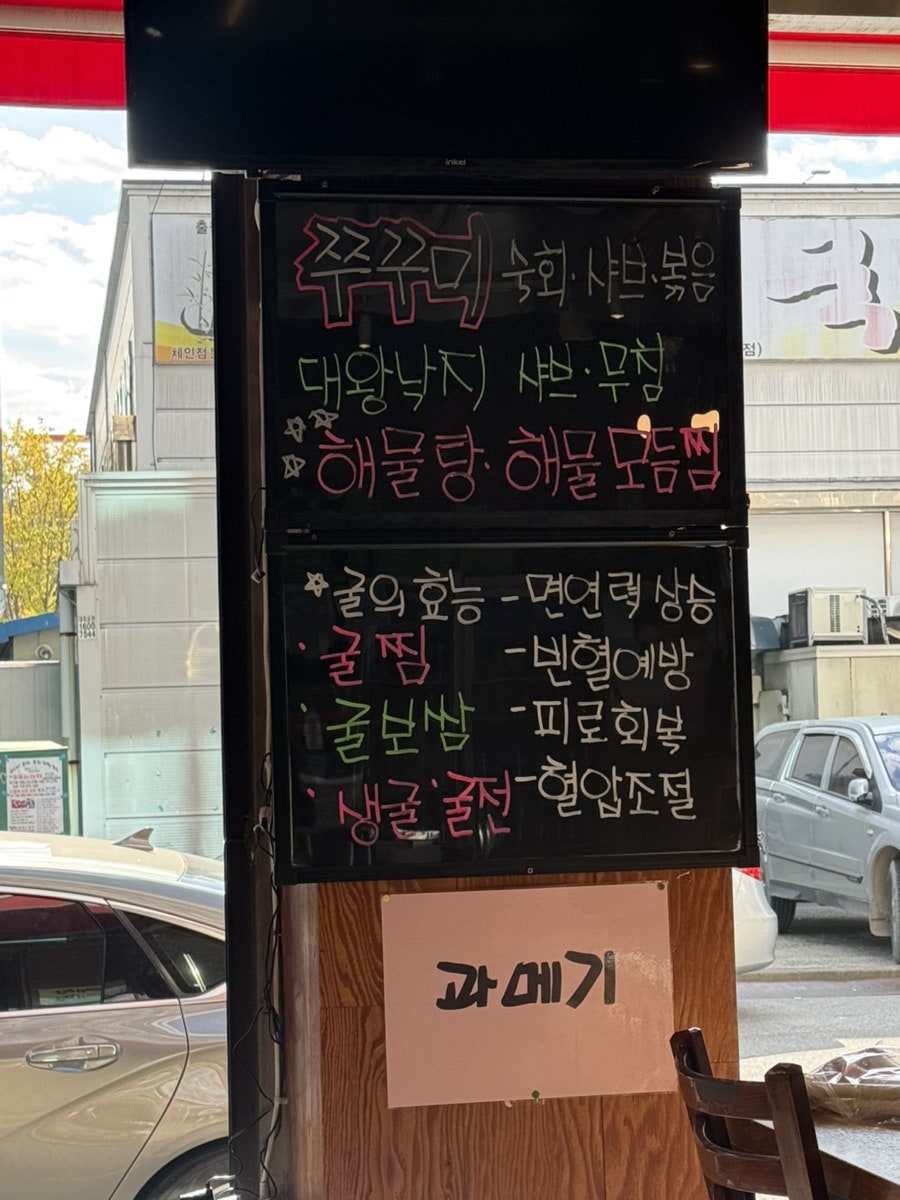 inkel
쭈꾸미 숙회·샤브·볶음
대왕낙지 샤브·무침
해물탕·해물모듬찜
굴의 효능 -면연력 상승
·굴찜 -빈혈예방
·굴보쌈 -피로회복
·생굴 ·굴전 -혈압조절
과메기
체인점
점)
1600
7544